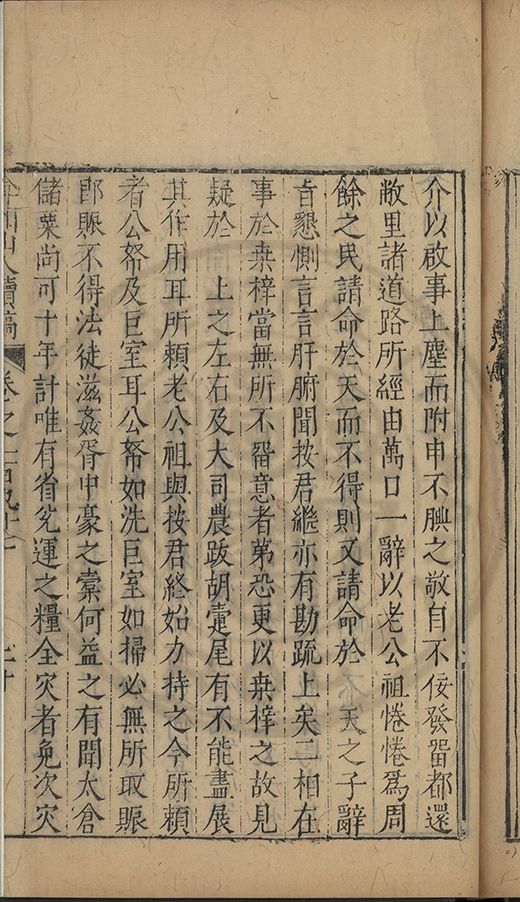 介以啟事上塵而附申不腆之敬自不佞發畱都還
敝里諸道路所經由萬口一辭以老公祖惓惓爲周
餘之民請命於天而不得則又請命於不天之子辭
旨懇惻言言肝腑聞按君繼亦有勘疏上矣二相在
事於桒梓當無所不畱意者苐恐更以桒梓之故見
疑於　上之左右及大司農跋胡疐尾有不能盡展
其作用耳所頼老公祖與按君終始力持之今所頼
者公帑及巨室耳公帑如洗巨室如掃必無所取賑
即賑不得法徒滋姦胥中豪之橐何益之有聞太倉
儲粟尚可十年計唯有省兊運之糧全灾者免次灾
弇州山人續稿　卷之一百九十